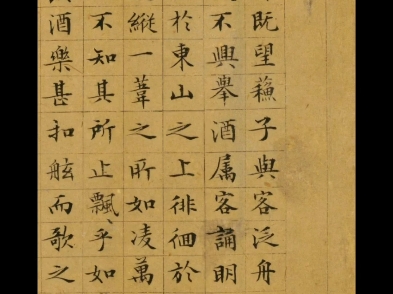 既望蘓子與客泛舟
不興舉酒属客誦明
於東山之上徘徊於
縱一葦之所如凌萬
不知其所止飄乎如
酒樂甚扣舷而歌之